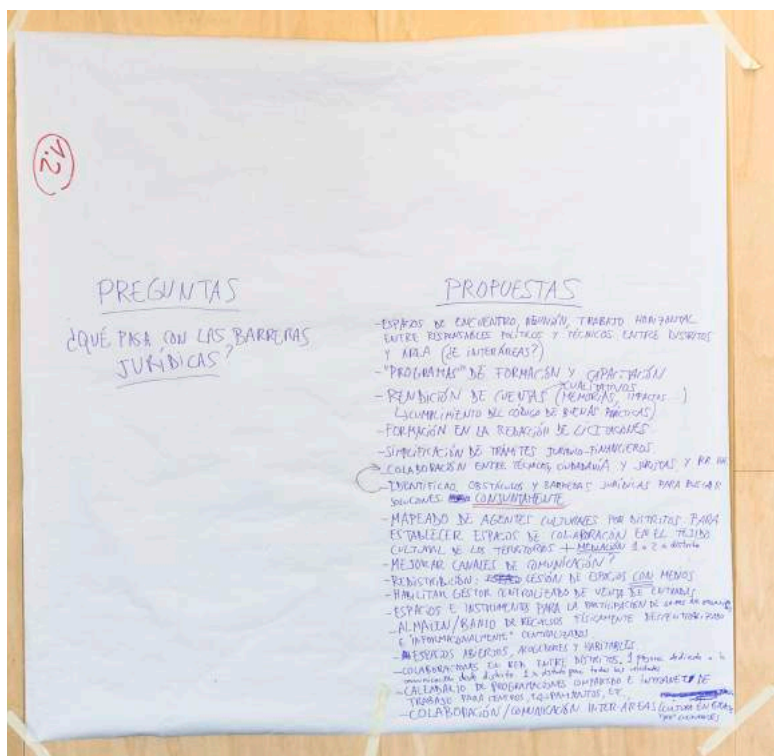 1.2
PREGUNTAS
¿QUÉ PASA CON LAS BARRERAS
JURÍDICAS?
PROPUESTAS
-ESPACIOS DE ENCUENTRO, REUNIÓN, TRABAJO HORIZONTAL
ENTRE RESPONSABLES POLÍTICOS Y TÉCNICOS ENTRE DISTRITOS
Y ÁREA (¿E INTERÁREAS?)
-"PROGRAMAS" DE FORMACIÓN Y CAPACITACIÓN
CUALITATIVOS
-RENDICIÓN DE CUENTAS (MEMORIAS, IMPACTOS...)
CUMPLIMIENTO DEL CÓDIGO DE BUENAS PRÁCTICAS)
-FORMACIÓN EN LA REDACCIÓN DE LICITACIONES
-SIMPLIFICACIÓN DE TRÁMITES JURÍDICO-FINANCIEROS
-COLABORACIÓN ENTRE TÉCNICOS, CIUDADANÍA Y JURISTAS Y RR HH
-IDENTIFICAR OBSTÁCULOS Y BARRERAS JURÍDICAS PARA BUSCAR
SOLUCIONES CONJUNTAMENTE
-MAPEADO DE AGENTES CULTURALES POR DISTRITOS PARA
ESTABLECER ESPACIOS DE COLABORACIÓN EN EL TEJIDO
CULTURAL DE LOS TERRITORIOS + MEDIACIÓN 1 o 2 x distrito
-MEJORAR CANALES DE COMUNICACIÓN?
-REDISTRIBUCIÓN: CESIÓN DE ESPACIOS CON MENOS
-HABILITAR GESTOR CENTRALIZADO DE VENTA DE ENTRADAS
-ESPACIOS E INSTRUMENTOS PARA LA PARTICIPACIÓN DE
-ALMACÉN/BANCO DE RECURSOS FÍSICAMENTE DESCENTRALIZADO
E "INFORMACIONALMENTE" CENTRALIZADOS
-ESPACIOS ABIERTOS, ACOGEDORES Y HABITABLES
-COLABORACIONES EN RED ENTRE DISTRITOS. 1 persona dedicada a la
comunicación desde distrito. 1 x distrito para todas las unidades
-CALENDARIO DE PROGRAMACIONES COMPARTIDO E INTRANET DE
TRABAJO PARA CENTROS, EQUIPAMIENTOS, ETC.
-COLABORACIÓN/COMUNICACIÓN INTER-ÁREAS (CULTURA EN